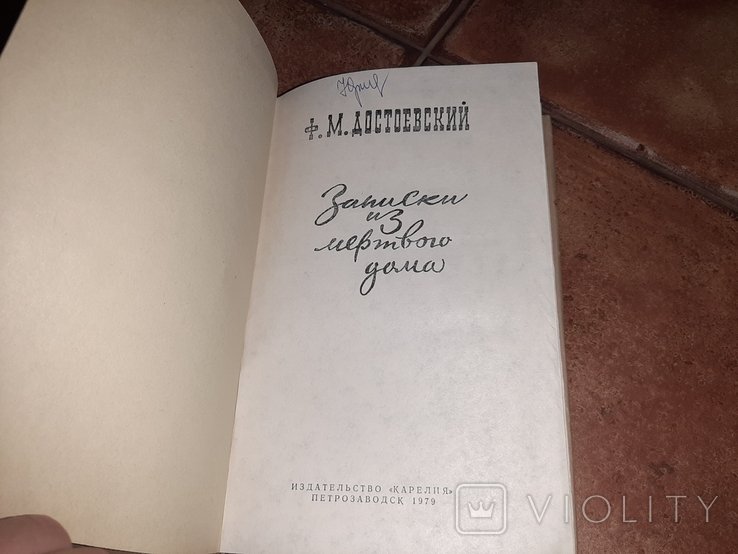 Ф. М. ДОСТОЕВСКИЙ
Записки
из
мертвого
дома
ИЗДАТЕЛЬСТВО «КАРЕЛИЯ»
ПЕТРОЗАВОДСК 1979
VIOLITY